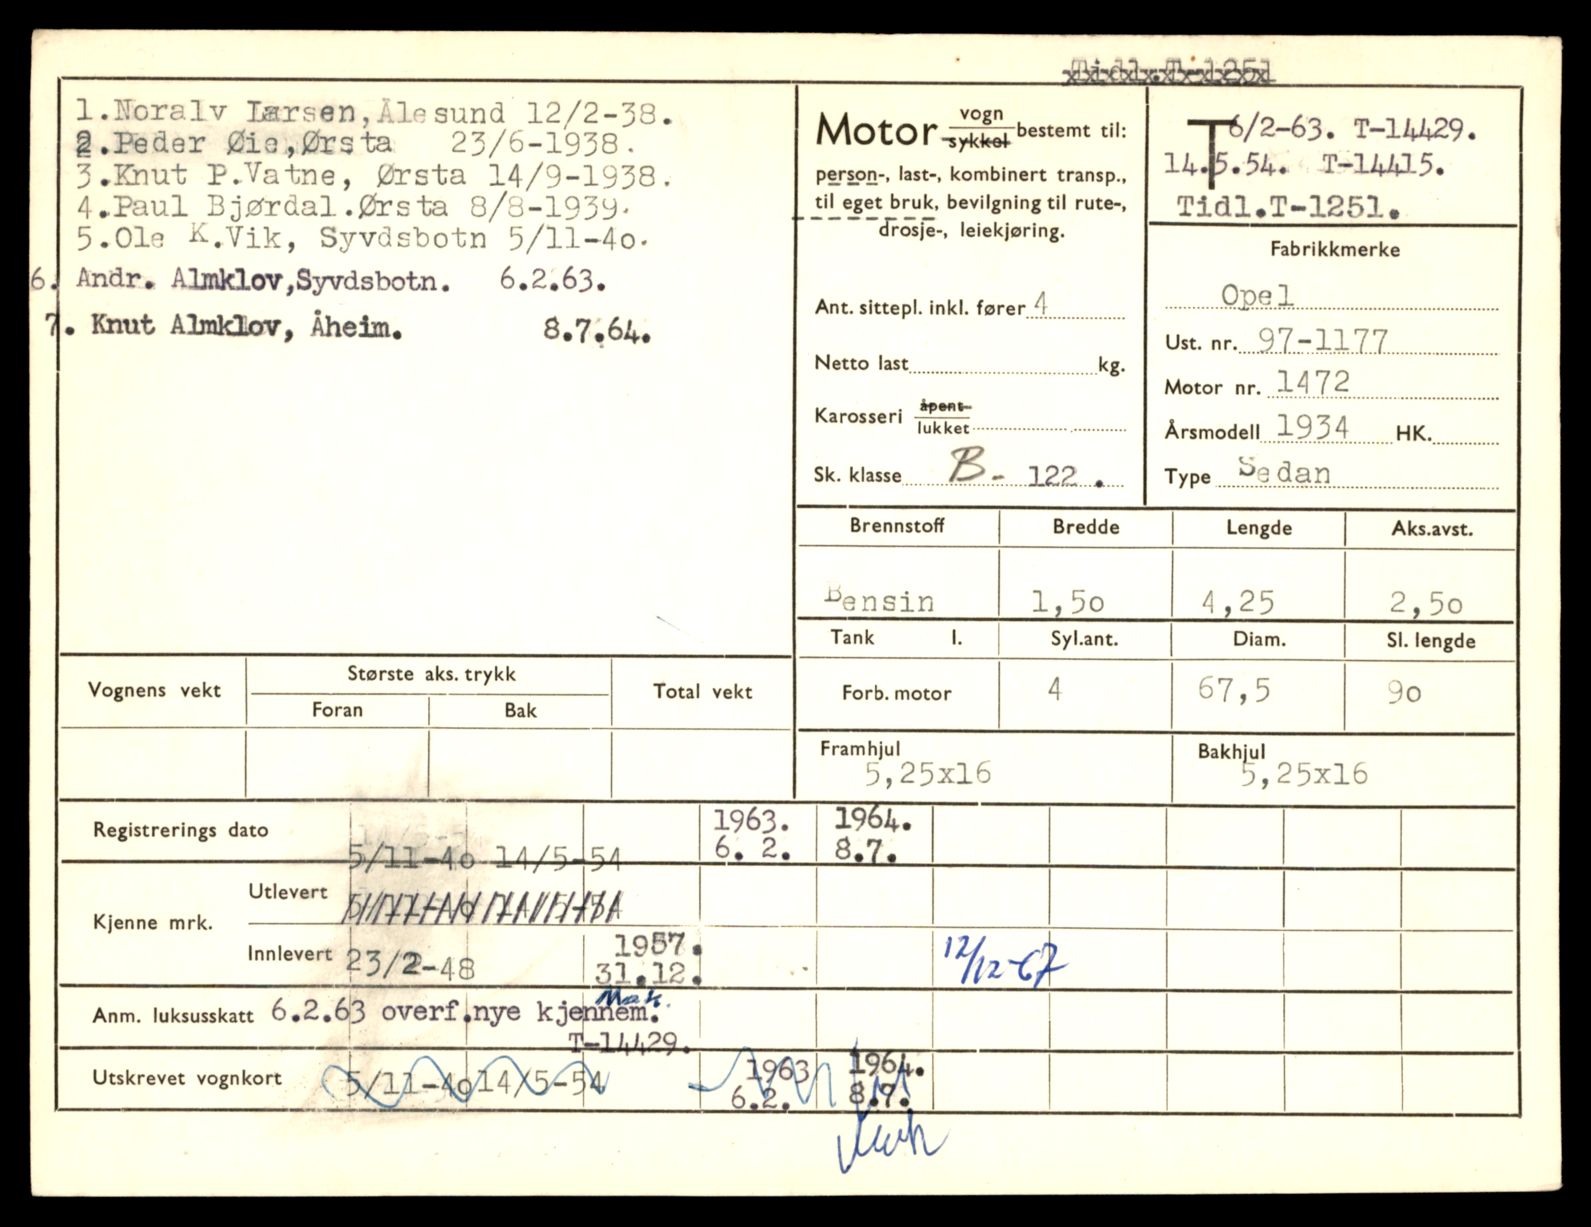 Tidl.T-1251
1.Noralv Larsen,Ålesund 12/2-38.
2.Peder Øie,Ørsta 23/6-1938.
3.Knut P.Vatne, Ørsta 14/9-1938.
4.Paul Bjørdal.Ørsta 8/8-1939.
5.Ole K.Vik, Syvdsbotn 5/11-4o.
6. Andr. Almklov,Syvdsbotn. 6.2.63.
7. Knut Almklov, Åheim. 8.7.64.
Motor vogn sykkel bestemt til:
person-, last-, kombinert transp.,
til eget bruk, bevilgning til rute-,
drosje-, leiekjøring.
Ant. sittepl. inkl. fører 4
Netto last kg.
Karosseri åpent- lukket
Sk. klasse B- 122 .
T 6/2-63. T-14429.
14.5.54. T-14415.
Tidl.T-1251.
Fabrikkmerke
Opel
Ust. nr. 97-1177
Motor nr. 1472
Årsmodell 1934 HK.
Type Sedan
Brennstoff Bredde Lengde Aks.avst.
Bensin 1,5o 4,25 2,5o
Tank l. Syl.ant. Diam. Sl. lengde
Forb. motor 4 67,5 9o
Framhjul Bakhjul
5,25x16 5,25x16
Vognens vekt Største aks. trykk Total vekt
Foran Bak
Registrerings dato 5/11-4o 14/5-54 1963. 6. 2. 1964. 8.7.
Kjenne mrk.
Utlevert
Innlevert 23/2-48 1957. 31.12. 12/12-67
Anm. luksusskatt 6.2.63 overf.nye kjennem.
T-14429.
Utskrevet vognkort 5/11-4o 14/5-54 1963 6.2. 1964. 8.7.